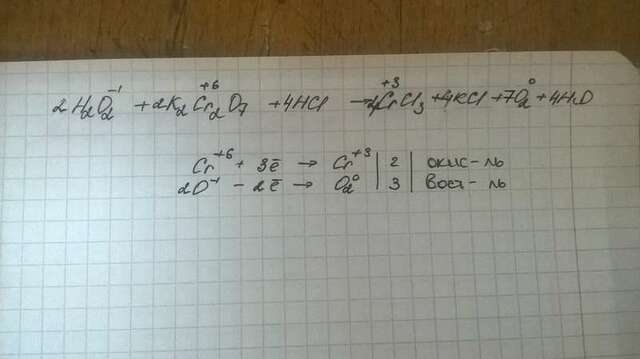 2H₂O₂⁻¹ + 2K₂Cr₂⁺⁶O₇ + 4HCl → 4Cr⁺³Cl₃ + 4KCl + 7O₂⁰ + 4H₂O
Cr⁺⁶ + 3ē → Cr⁺³ | 2 | окис-ль
2O⁻¹ - 2ē → O₂⁰ | 3 | вост-ль